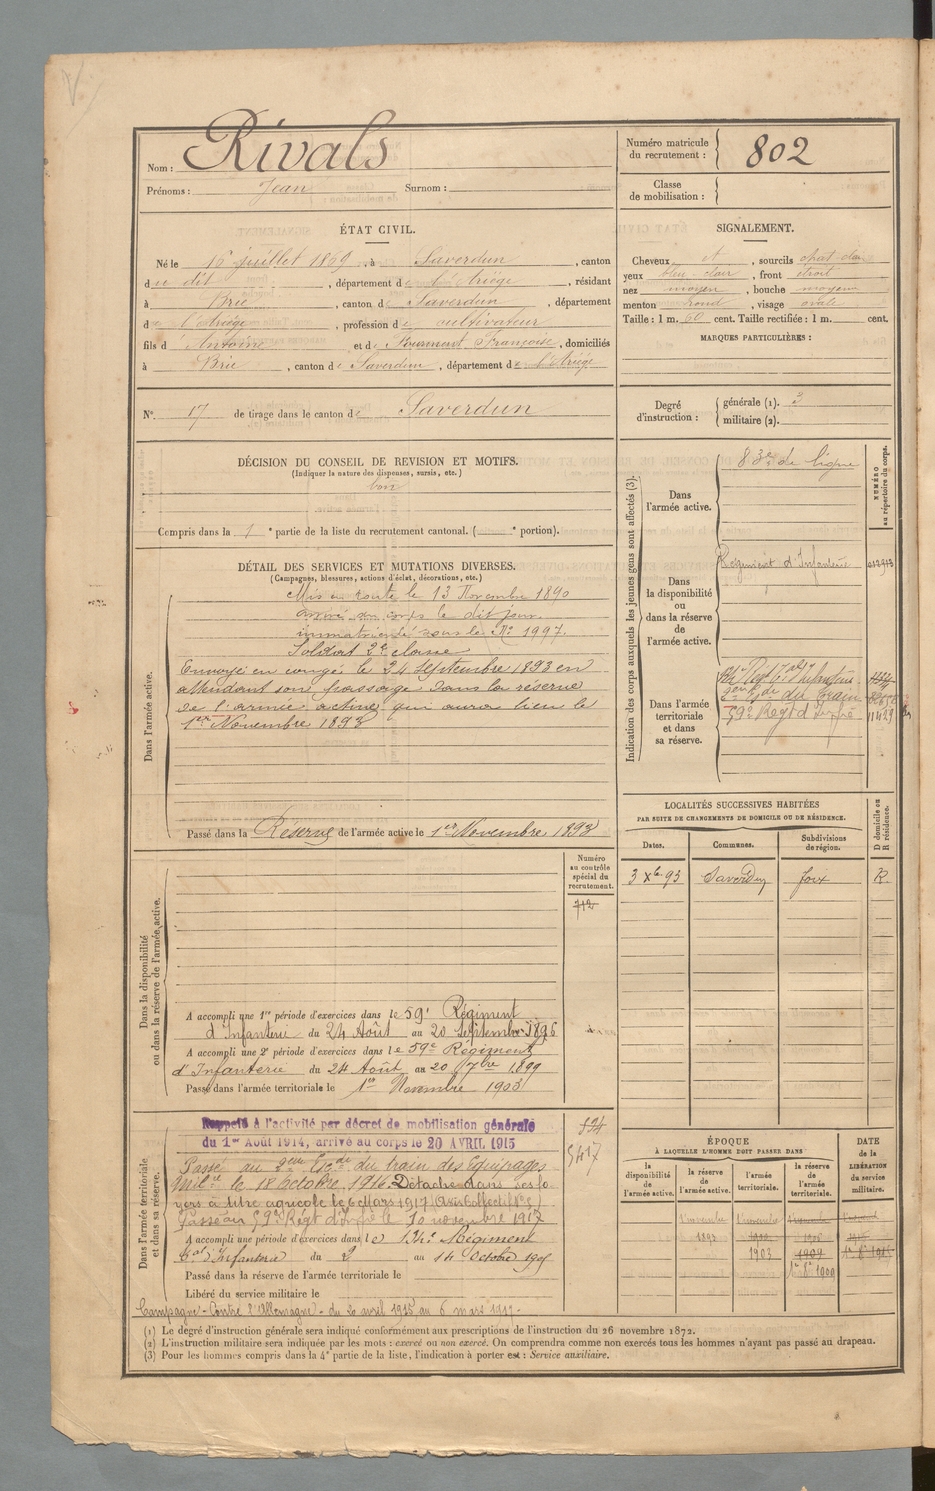 Nom : Rivals
Prénoms : Jean Surnom :
Numéro matricule du recrutement : 802
Classe de mobilisation :
ÉTAT CIVIL.
Né le 16 juillet 1869, à Saverdun, canton
du dit, département de l'Ariège, résidant
à Brie, canton de Saverdun, département
de l'Ariège, profession de cultivateur
fils d'Antoine et de Française, domiciliés
à Brie, canton de Saverdun, département de l'Ariège
SIGNALEMENT.
Cheveux et, sourcils chat clair
yeux bleu-clair, front étroit
nez moyen, bouche moyenne
menton rond, visage ovale
Taille : 1 m. 60 cent. Taille rectifiée : 1 m. cent.
MARQUES PARTICULIÈRES :
N° 17 de tirage dans le canton de Saverdun
Degré d'instruction : générale (1). 3
militaire (2).
DÉCISION DU CONSEIL DE REVISION ET MOTIFS.
(Indiquer la nature des dispenses, sursis, etc.)
bon
Compris dans la 1e partie de la liste du recrutement cantonal. ( e portion).
DÉTAIL DES SERVICES ET MUTATIONS DIVERSES.
(Campagnes, blessures, actions d'éclat, décorations, etc.)
Dans l'armée active.
Mis en route le 13 Novembre 1890
arrivé au corps le dit jour.
immatriculé sous le N° 1997.
Soldat 2e classe
Envoyé en congé le 24 Septembre 1893 en
attendant son passage dans la réserve
de l'armée active qui aura lieu le
1er Novembre 1893
Passé dans la Réserve de l'armée active le 1er Novembre 1893
Indication des corps auxquels les jeunes gens sont affectés (3).
NUMÉRO au répertoire du corps.
Dans l'armée active.
83e de ligne
Dans la disponibilité ou dans la réserve de l'armée active.
Régiment d'Infanterie
Dans l'armée territoriale et dans sa réserve.
59e Régt d'Infrie
LOCALITÉS SUCCESSIVES HABITÉES
PAR SUITE DE CHANGEMENTS DE DOMICILE OU DE RÉSIDENCE.
Dates. Communes. Subdivisions de région. D domicile ou R résidence.
3 Xbre 93 Saverdun Foix R.
Dans la disponibilité ou dans la réserve de l'armée active.
Numéro au contrôle spécial du recrutement.
712
A accompli une 1re période d'exercices dans le 59e Régiment
d'Infanterie du 24 Août au 20 Septembre 1896
A accompli une 2e période d'exercices dans le 59e Régiment
d'Infanterie du 24 Août au 20 7bre 1899
Passé dans l'armée territoriale le 1er Novembre 1903
Dans l'armée territoriale et dans sa réserve.
Rappelé à l'activité par décret de mobilisation générale
du 1er Août 1914, arrivé au corps le 20 AVRIL 1915
Passé au Escon du train des Equipages
Milre le 18 Octobre 1916. Détaché dans ses fo-
yers à titre agricole le 6 Mars 1917
Passé au 59e Régt d'Infrie le 10 novembre 1917
A accompli une période d'exercices dans le 134e Régiment
d'Infanterie du 2 au 14 Octobre 1905
Passé dans la réserve de l'armée territoriale le
Libéré du service militaire le
Campagne - Contre l'Allemagne - du 20 avril 1915 au 6 mars 1917.
ÉPOQUE
À LAQUELLE L'HOMME DOIT PASSER DANS
la disponibilité de l'armée active. la réserve de l'armée active. l'armée territoriale. la réserve de l'armée territoriale.
DATE de la LIBÉRATION du service militaire.
1 novembre 1 novembre
1893
1903 1909
1er 8bre 1909
(1) Le degré d'instruction générale sera indiqué conformément aux prescriptions de l'instruction du 26 novembre 1872.
(2) L'instruction militaire sera indiquée par les mots : exercé ou non exercé. On comprendra comme non exercés tous les hommes n'ayant pas passé au drapeau.
(3) Pour les hommes compris dans la 4e partie de la liste, l'indication à porter est : Service auxiliaire.